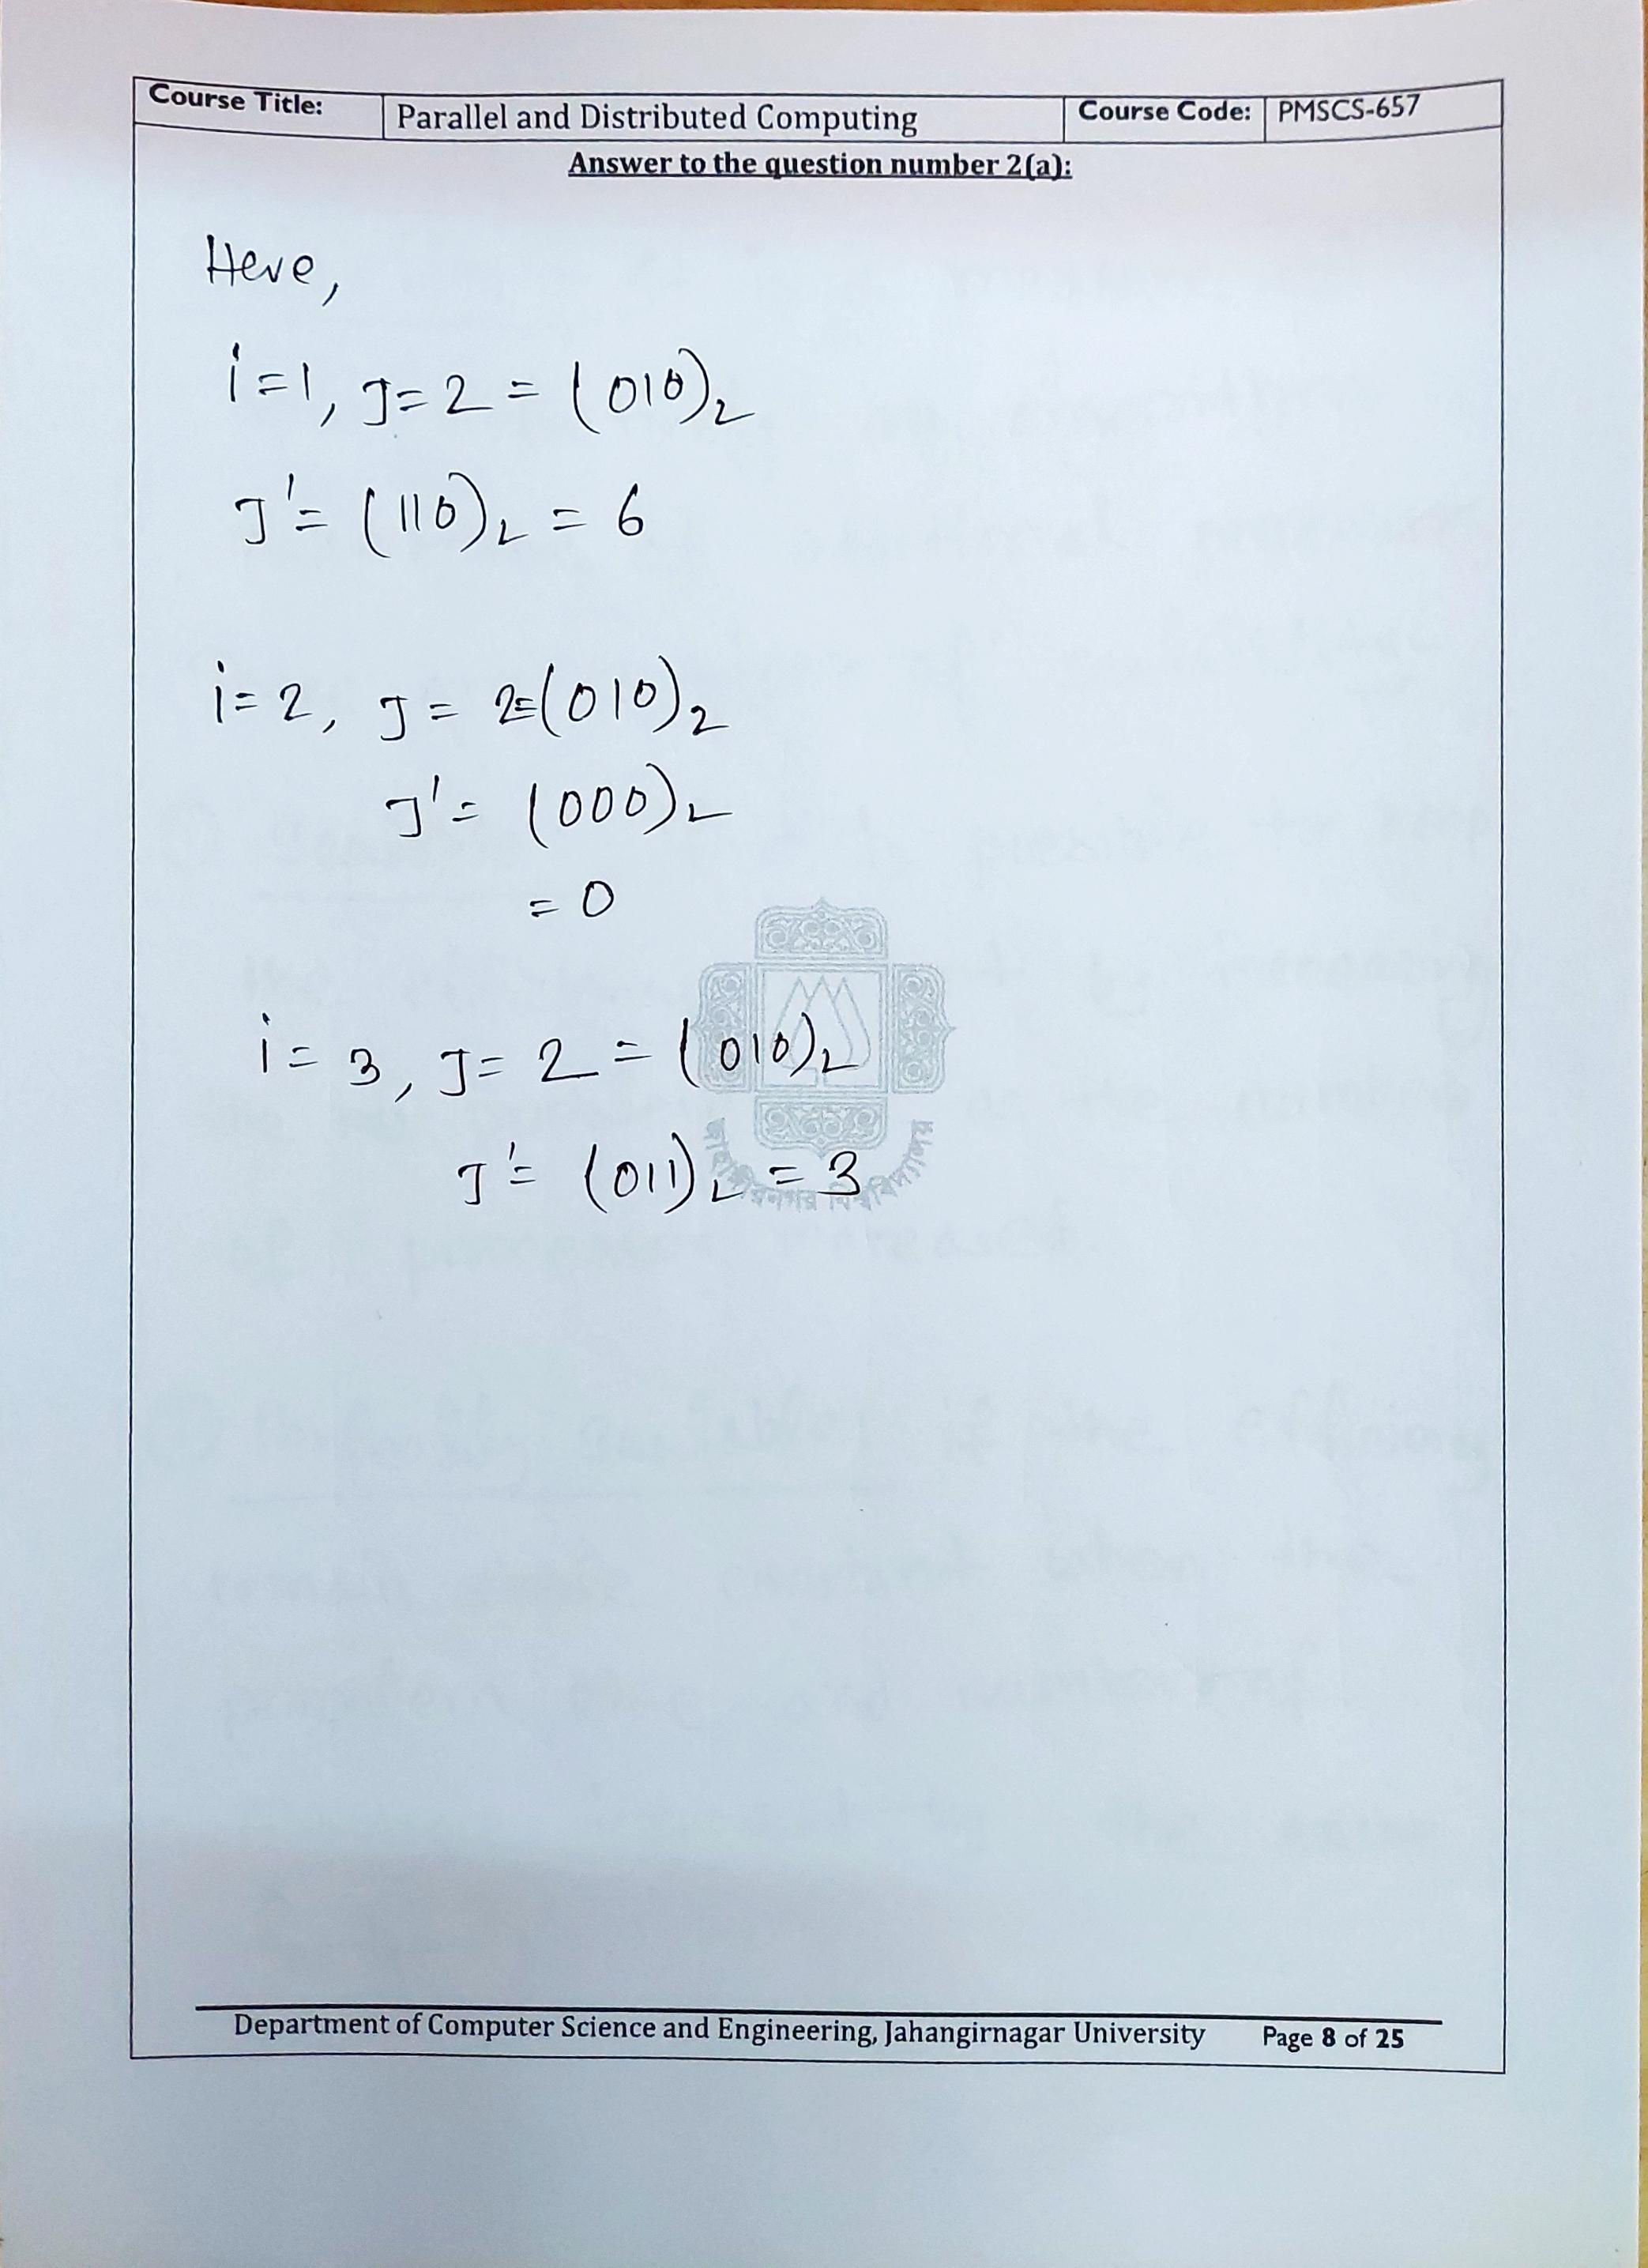 Course Title: Parallel and Distributed Computing Course Code: PMSCS-657
Answer to the question number 2(a):
Here,
i=1, J=2 = (010)₂
J'= (110)₂ = 6
i=2, J = 2=(010)₂
J'= (000)₂
= 0
i= 3, J= 2 = (010)₂
J'= (011)₂ = 3
Department of Computer Science and Engineering, Jahangirnagar University Page 8 of 25